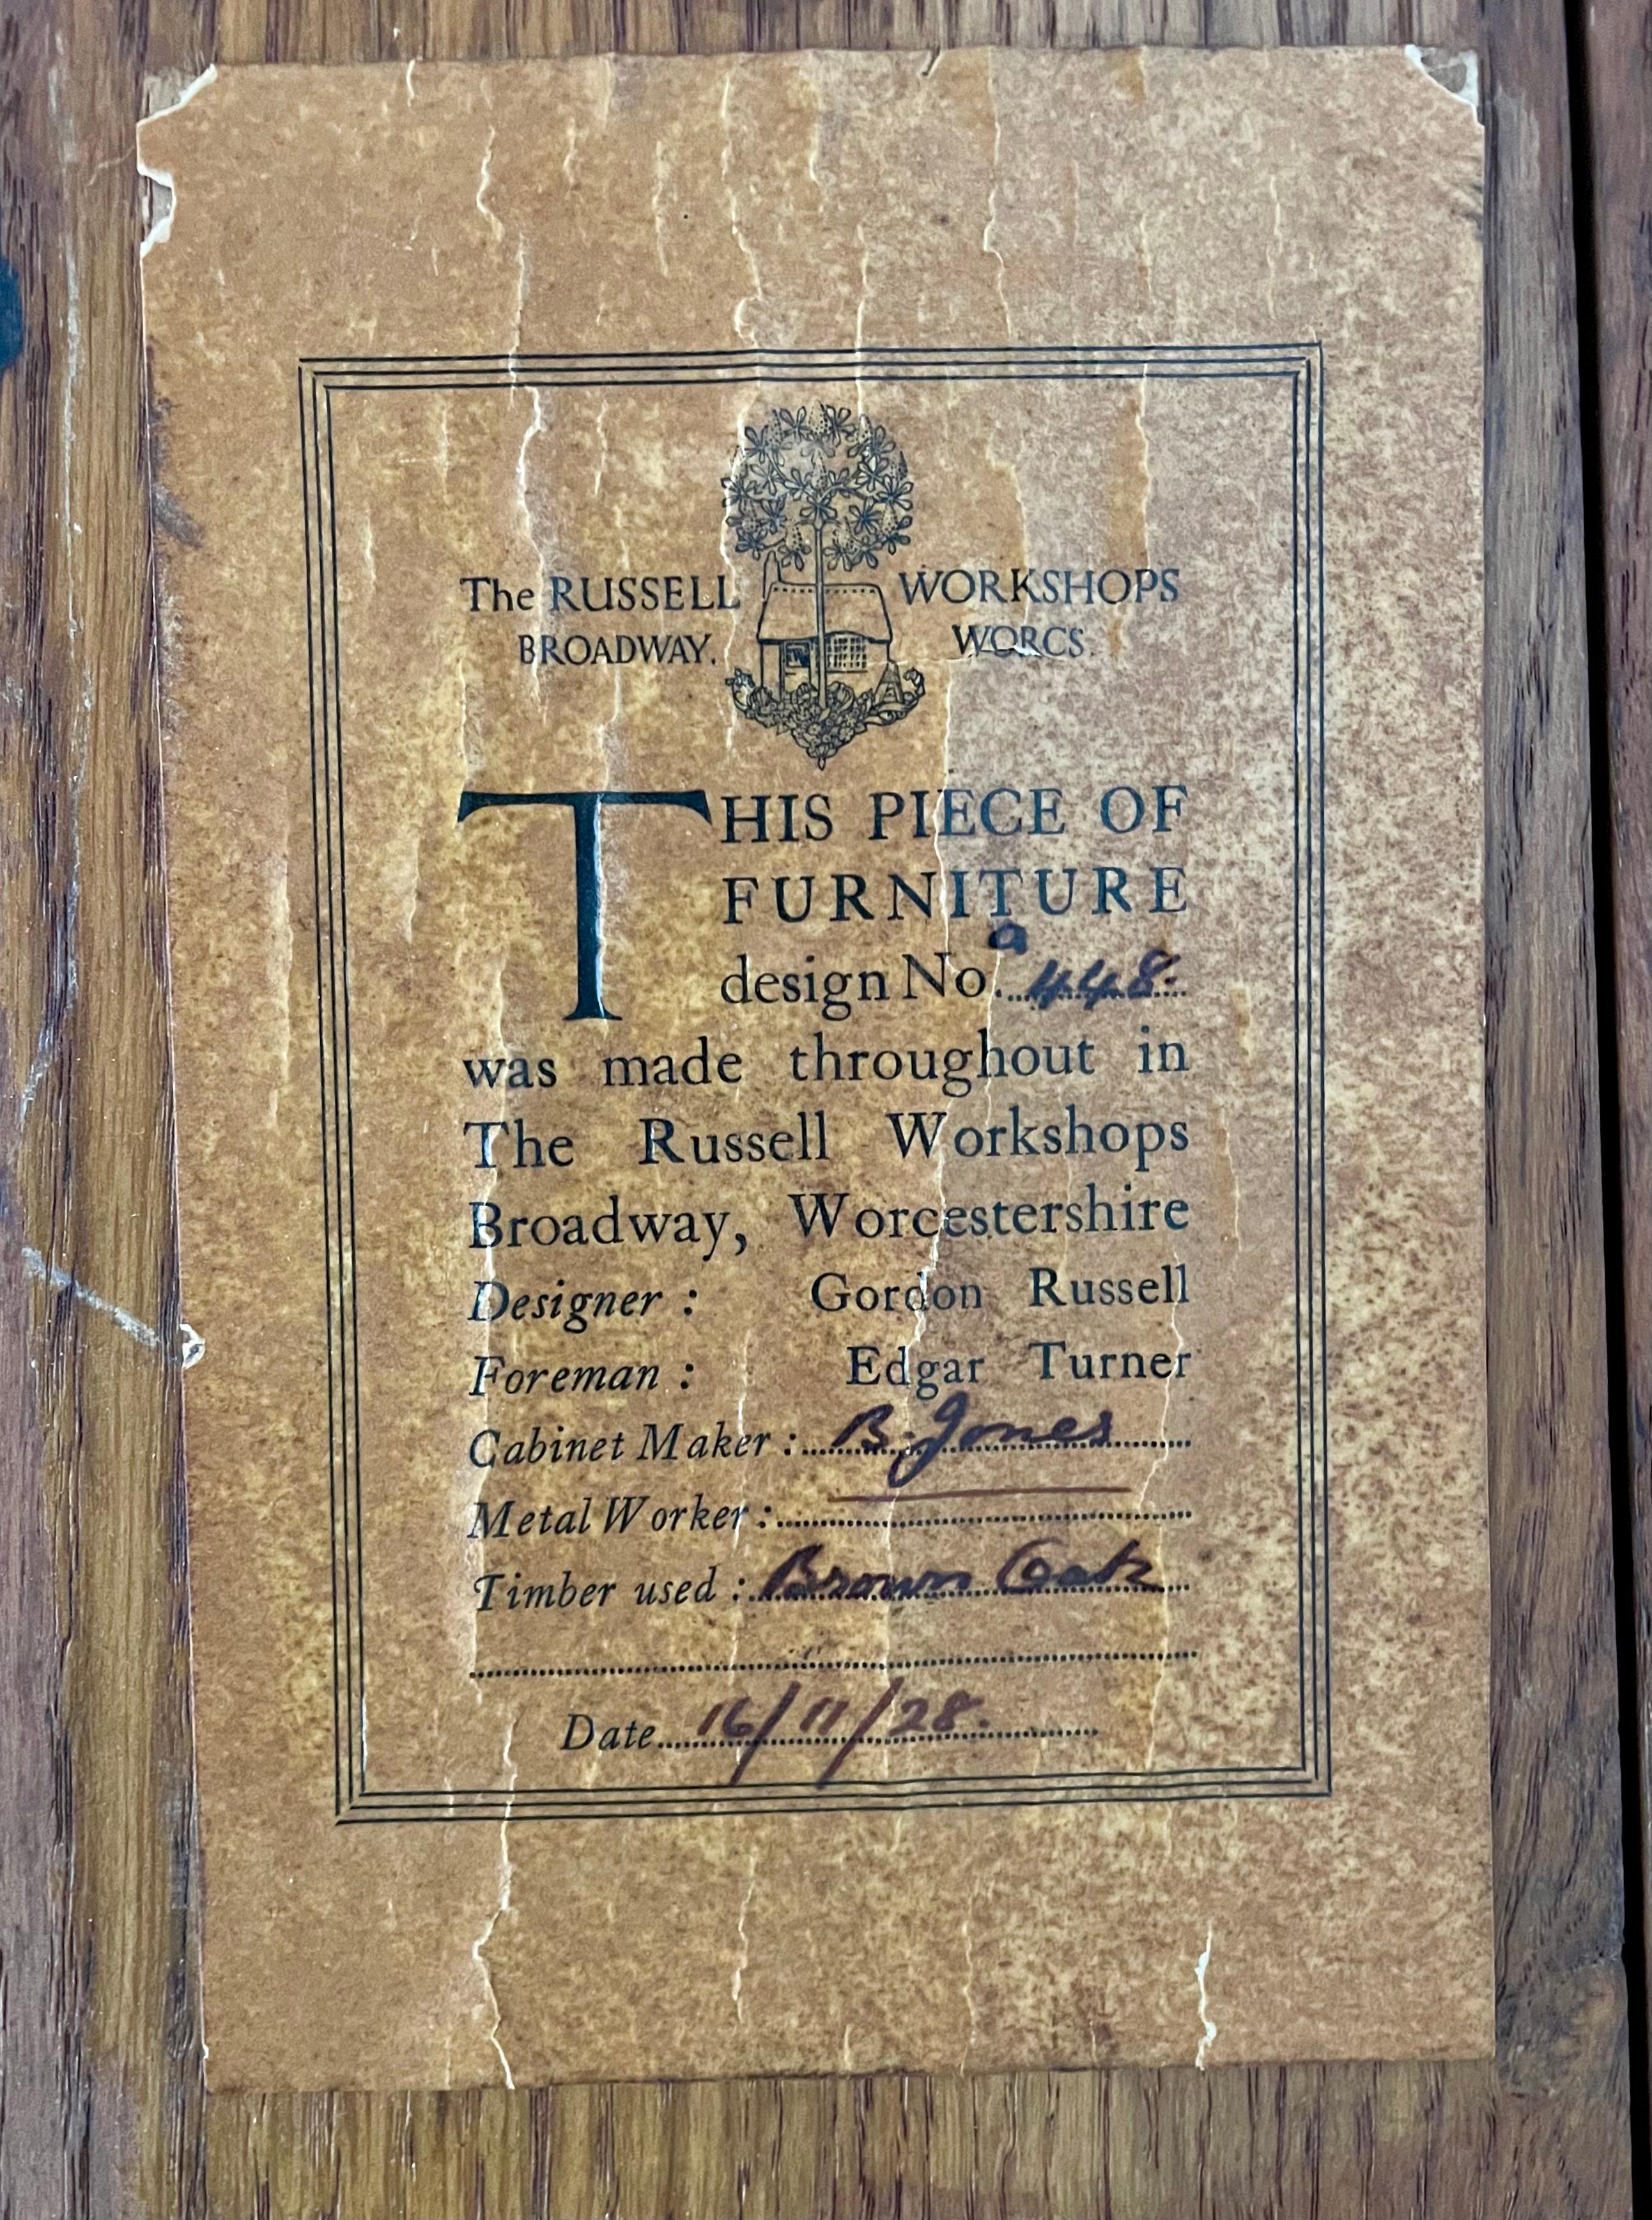 The RUSSELL WORKSHOPS
BROADWAY. WORCS.
THIS PIECE OF
FURNITURE
a
design No. 448.
was made throughout in
The Russell Workshops
Broadway, Worcestershire
Designer : Gordon Russell
Foreman : Edgar Turner
Cabinet Maker : B. Jones
Metal Worker :
Timber used : Brown Oak
Date 16/11/28.